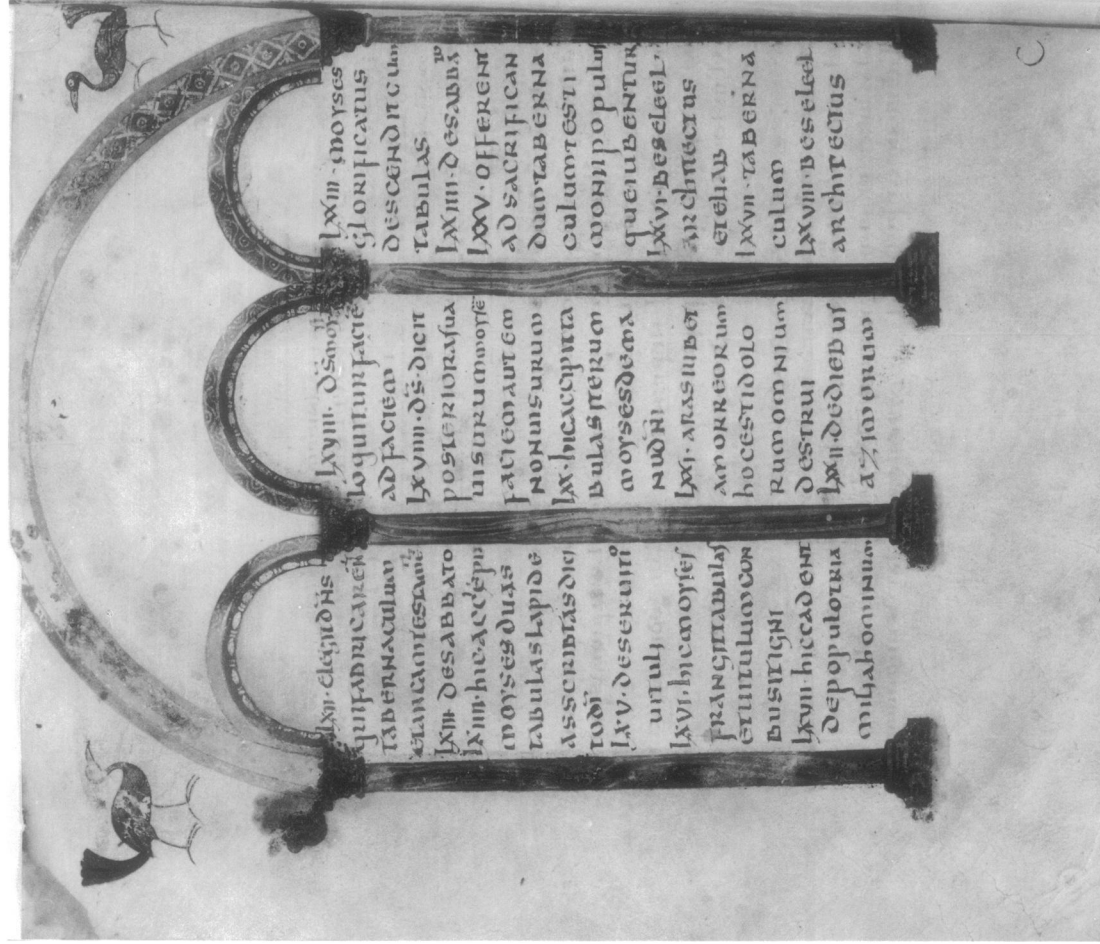 lxii · elegit dns
qui fabricaren
tabernaculum
lxiii · de sabbato
lxiiii · hic accepit
moyses duas
tabulas lapide
as scribtas digi
to di
lxv · de seruitio
uituli
lxvi · hic moyses
frangit tabulas
et uitulum con
busit igni
lxvii · hic cadent
de populo tria
milia hominum
lxviii · ds
loquitur facie
ad faciem
lxviiii · ds · dicit
posteriora sua
uisurum moyse
faciem autem
non uisurum
lxx · hic accipit ta
bulas iterum
moyses de ma
nu dni
lxxi · aras iubet
amorreorum
hoc est idolo
rum omnium
destrui
lxxii · de diebus
azimorum
lxxiii · moyses
glorificatus
descendit cum
tabulas
lxxiiii · de sabbato
lxxv · offerent
ad sacrifican
dum taberna
culum testi
monii populus
que iubentur
lxxvi · beseleel ·
architectus
et eliab
lxxvii · taberna
culum
lxxviii · beseleel
architectus